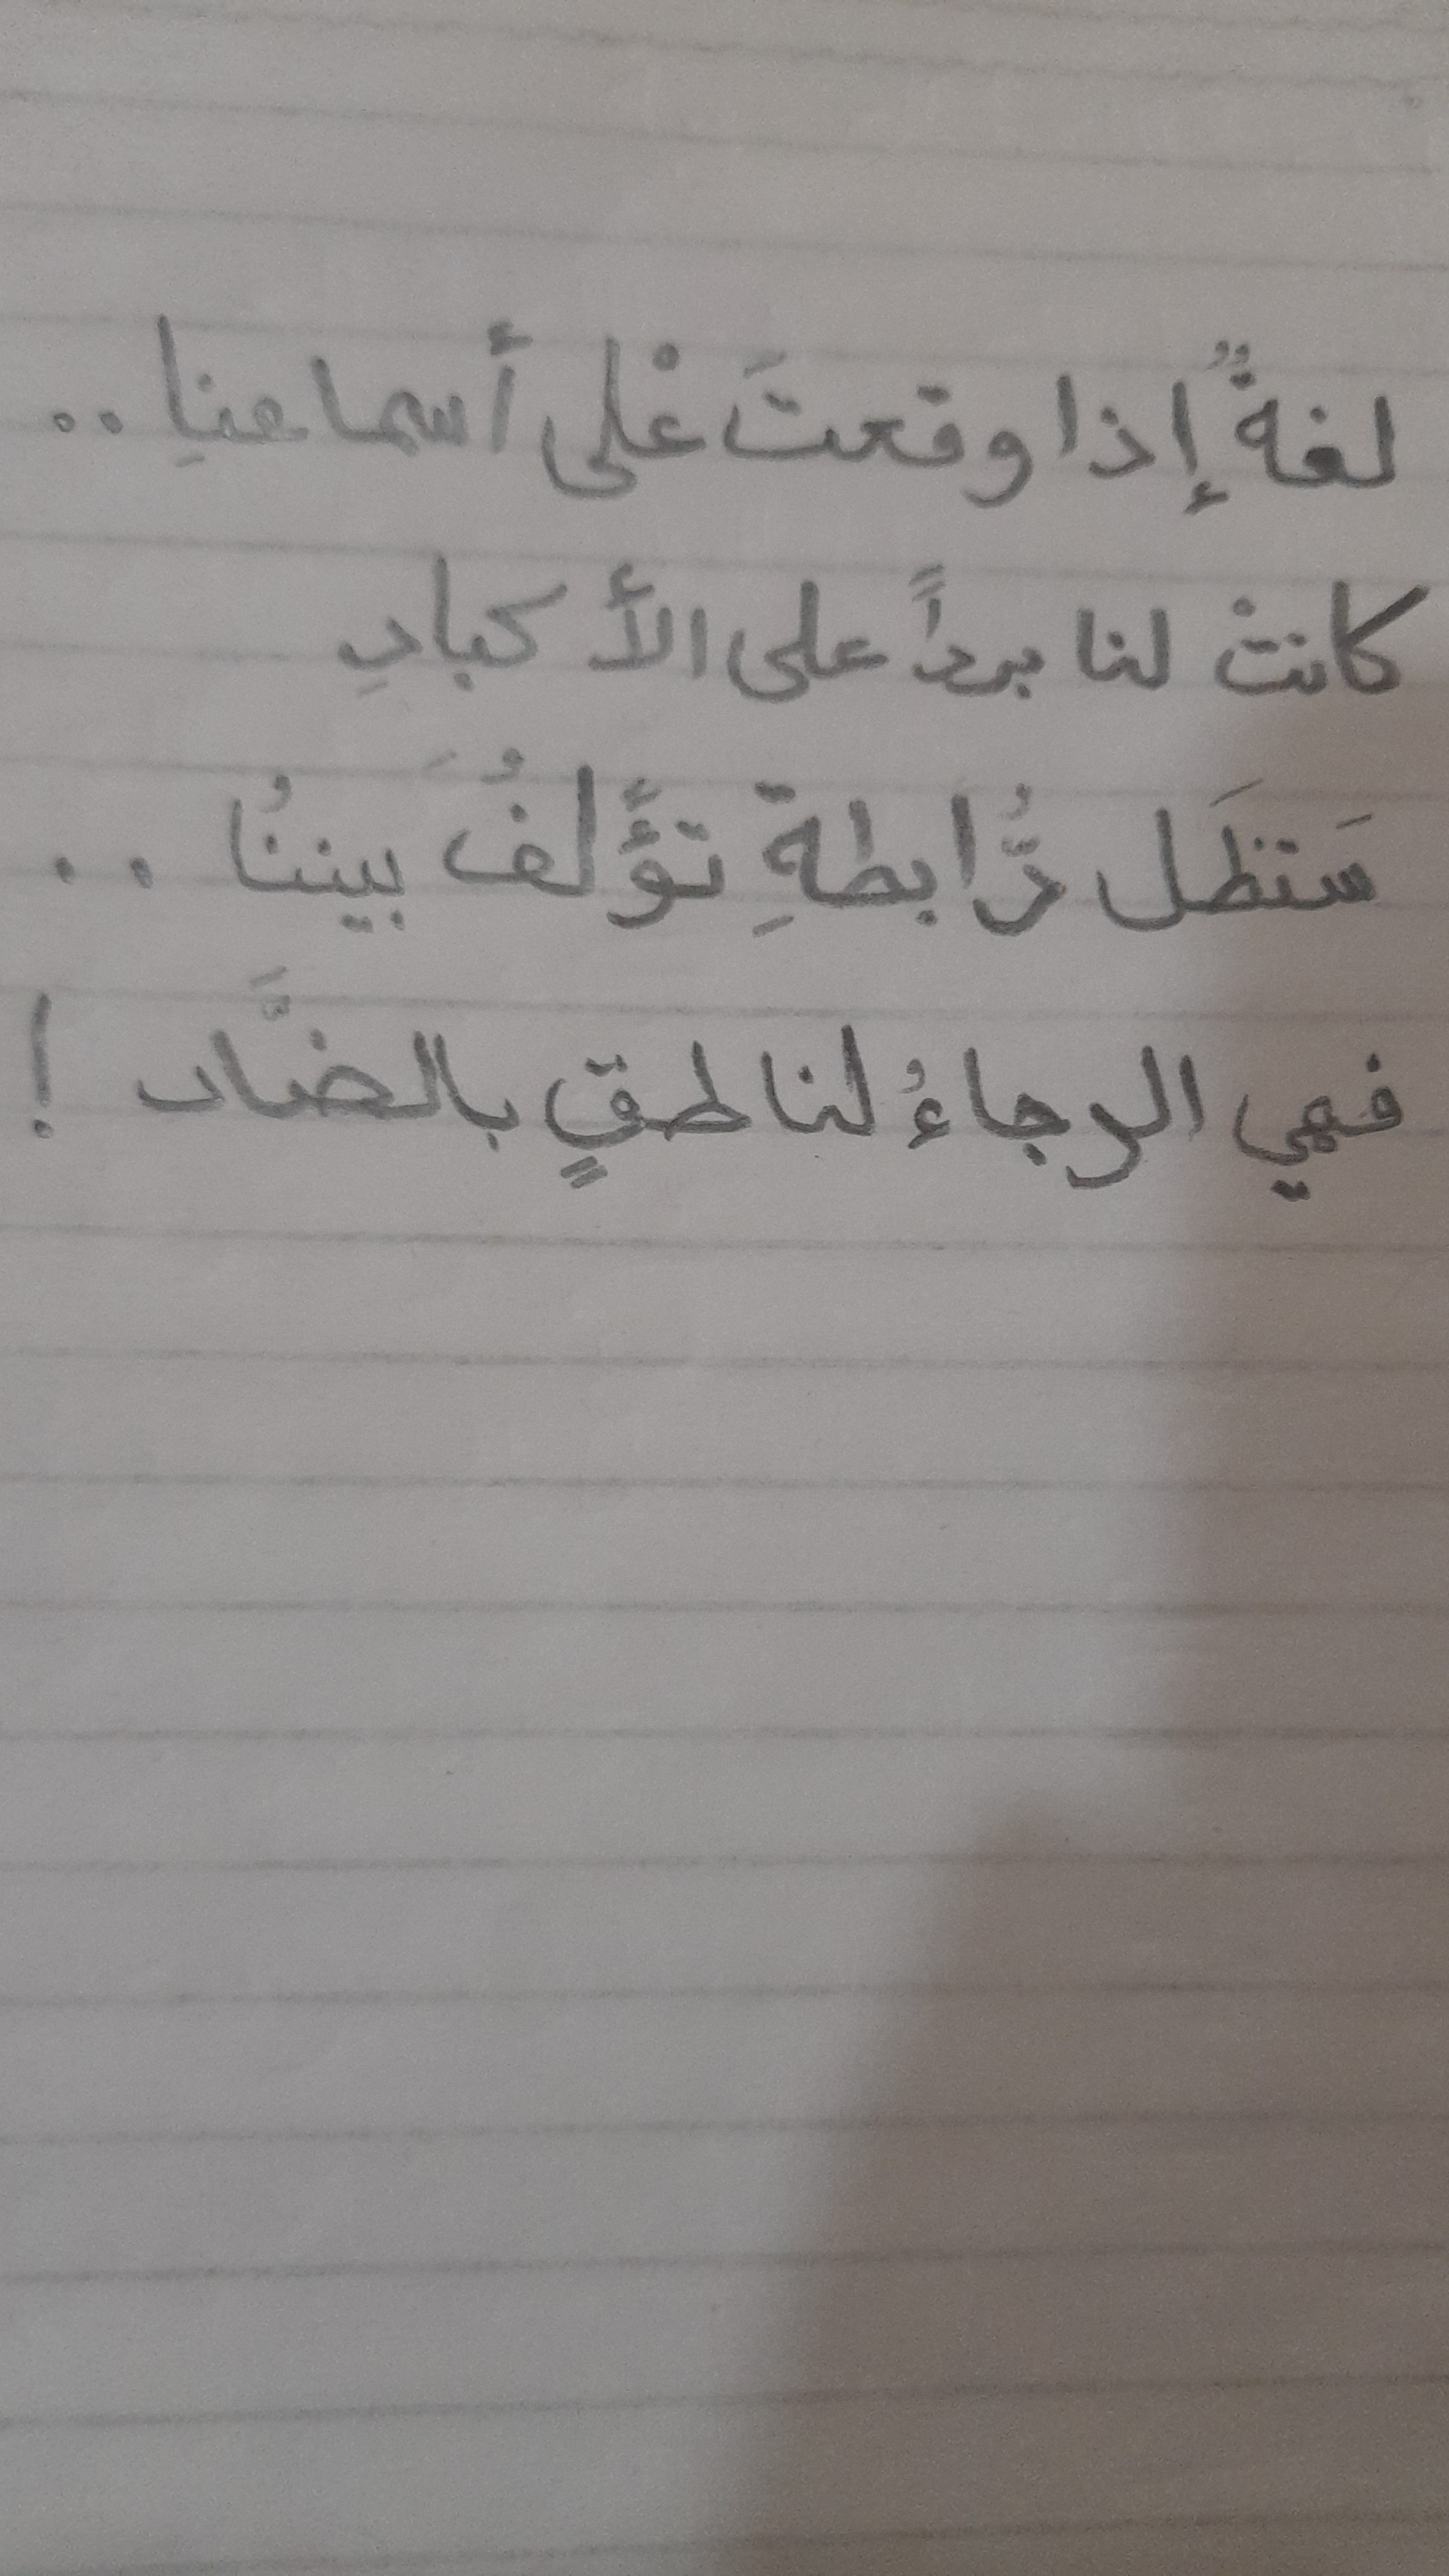 لغةٌ إذا وقعتَ عْلى أسماعنِا ..
كانتْ لنا برداً على الأكبادِ
سَتظَل رُّابطةِ تؤًلفُ بَيننُا ..
فهي الرجاءُ لناطقٍ بالضَّاد !